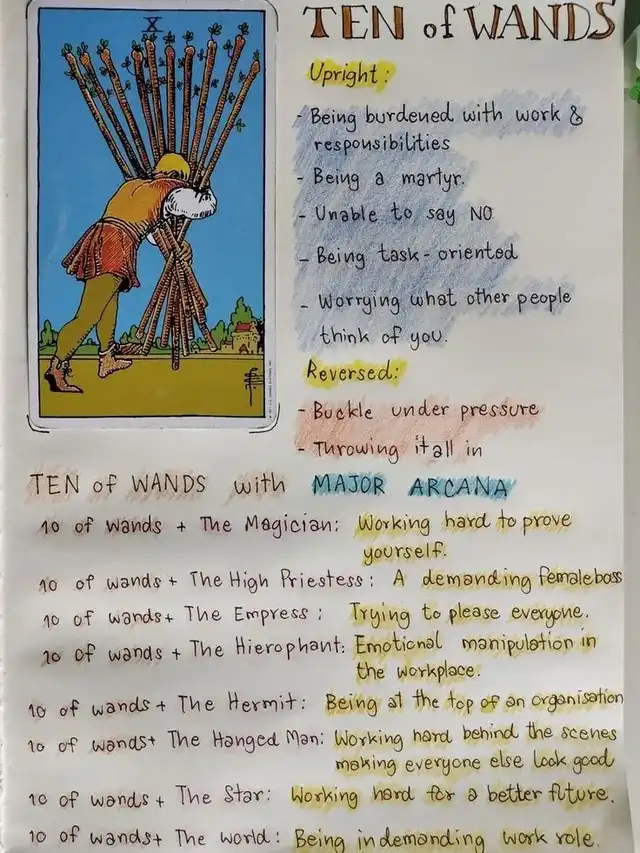 X
TEN of WANDS
Upright:
- Being burdened with work &
responsibilities
- Being a martyr.
- Unable to say NO
- Being task-oriented
- Worrying what other people
think of you.
Reversed:
- Buckle under pressure
- Throwing it all in
TEN of WANDS with MAJOR ARCANA
10 of wands + The Magician: Working hard to prove
yourself.
10 of wands + The High Priestess: A demanding female boss
10 of wands + The Empress: Trying to please everyone.
10 of wands + The Hierophant: Emotional manipulation in
the workplace.
10 of wands + The Hermit: Being at the top of an organisation
10 of wands + The Hanged Man: Working hard behind the scenes
making everyone else look good
10 of wands + The Star: Working hard for a better future.
10 of wands + The world: Being in demanding work role.